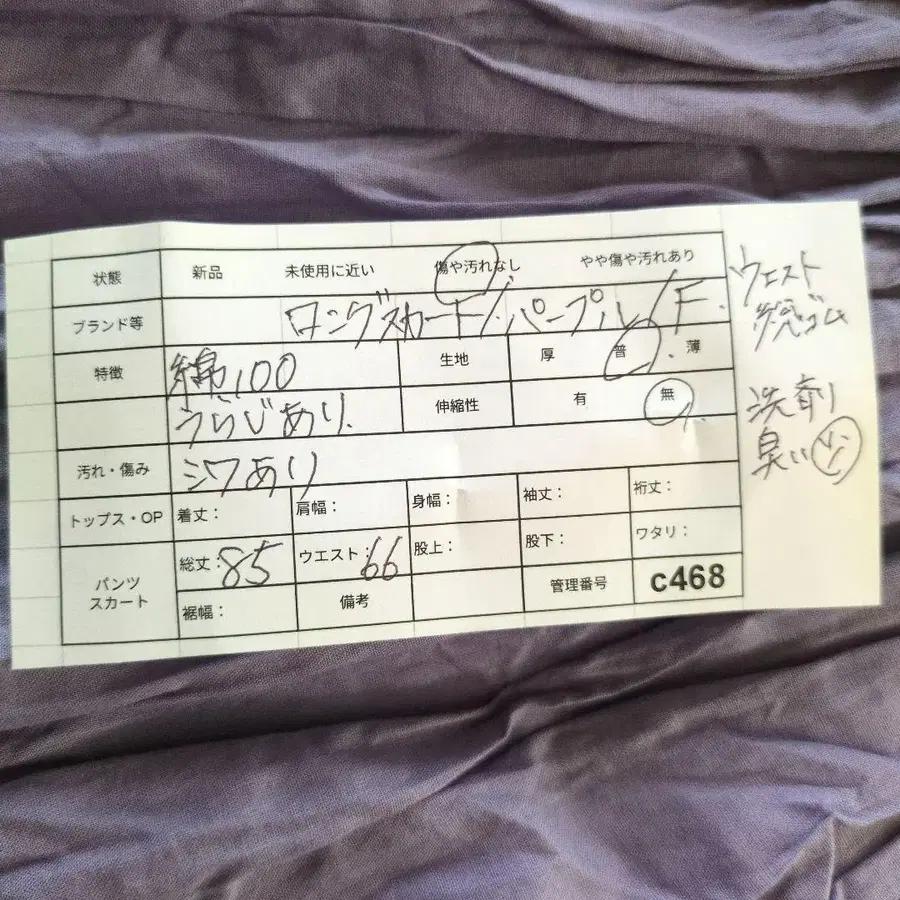 状態 新品 未使用に近い 傷や汚れなし やや傷や汚れあり
ブランド等 ロングスカート/パープル/F.
特徴 綿100 生地 厚 普 . 薄
うらじあり. 伸縮性 有 無
汚れ・傷み シワあり
トップス・OP 着丈: 肩幅: 身幅: 袖丈: 裄丈:
パンツ スカート 総丈:85 ウエスト:66 股上: 股下: ワタリ:
裾幅: 備考 管理番号 c468
ウエスト
総ゴム
洗剤
臭い 少